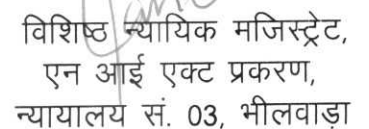 विशिष्ट न्यायिक मजिस्ट्रेट,
एन आई एक्ट प्रकरण,
न्यायालय सं. 03, भीलवाड़ा